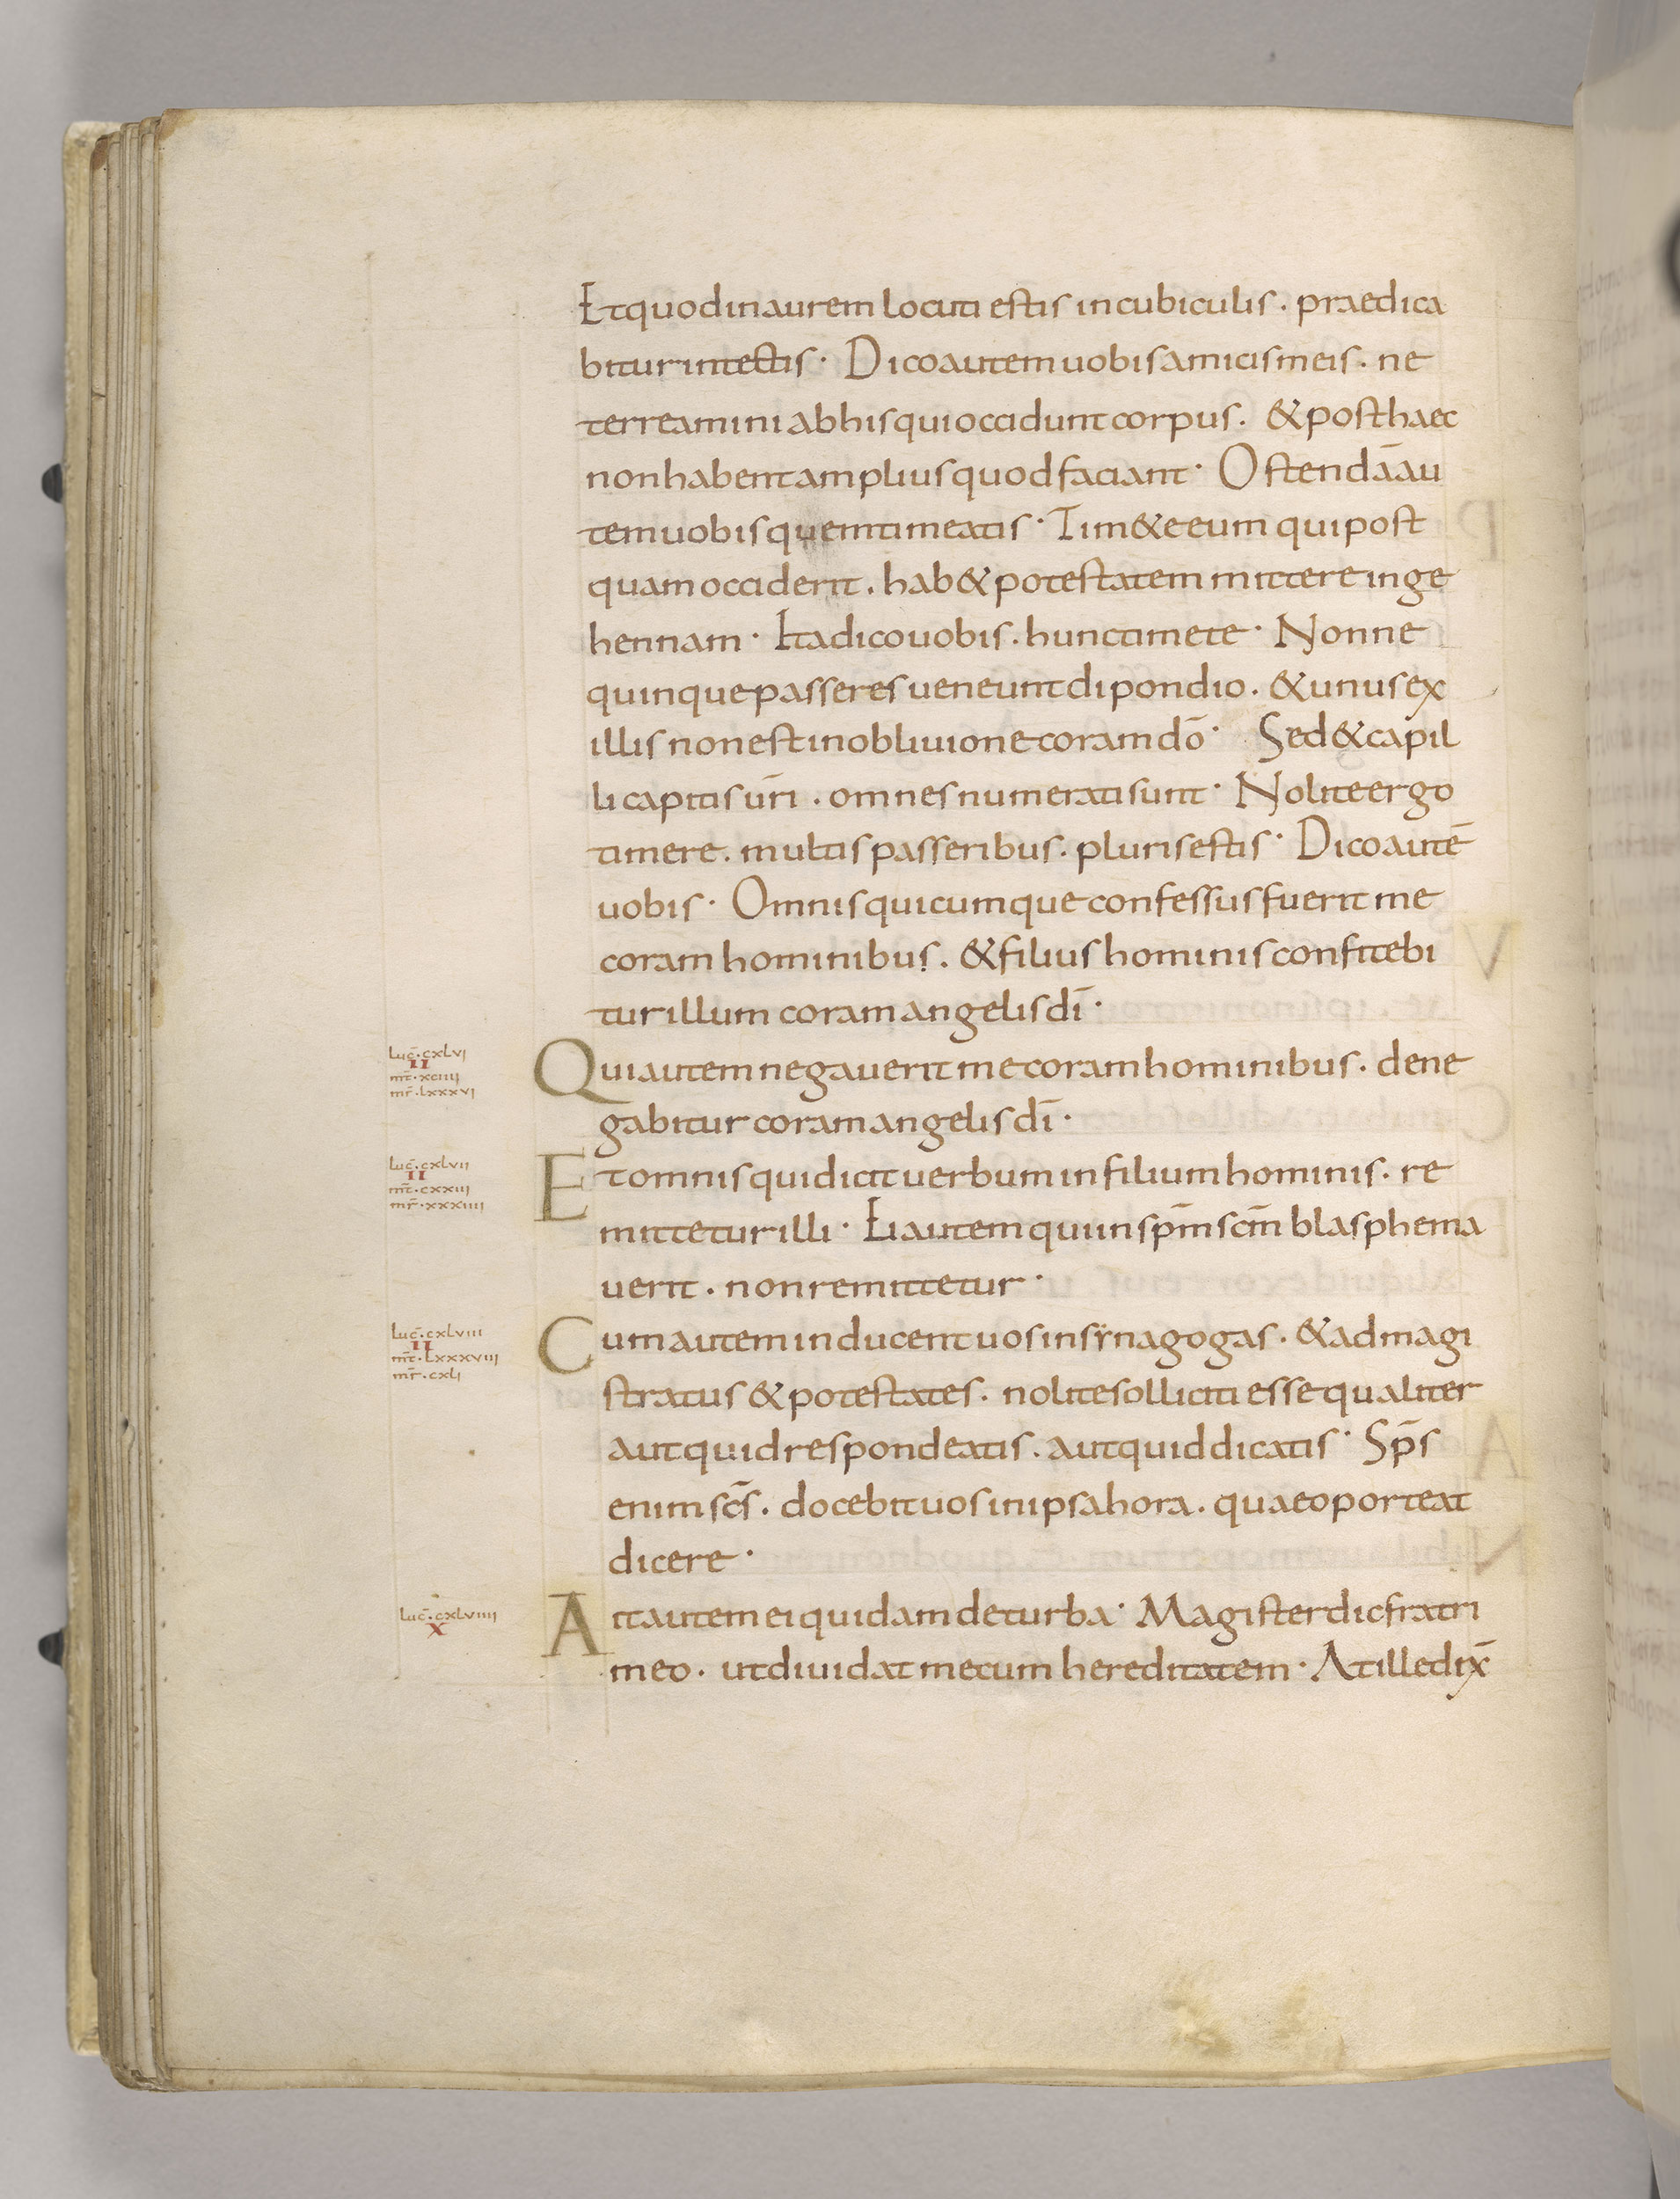 Et quod in aurem locuti estis in cubiculis · praedica
bitur in tectis · Dico autem uobis amicis meis · ne
terreamini ab his qui occidunt corpus · & post haec
non habent amplius quod faciant · Ostendā au
tem uobis quem timeatis · Tim&e eum qui post
quam occiderit · hab& potestatem mittere in ge
hennam · Ita dico uobis · hunc timete · Nonne
quinque passeres ueneunt dipondio · & unus ex
illis non est in obliuione coram dō · Sed & capil
li capitis ūri · omnes numerati sunt · Nolite ergo
timere · multis passeribus · pluris estis · Dico autē
uobis · Omnis quicumque confessus fuerit me
coram hominibus · & filius hominis confitebi
tur illum coram angelis dī ·
Luc̄ · cxlvi
II
mt̄ · xciiii
mr̄ · lxxxvi
Qui autem negauerit me coram hominibus · dene
gabitur coram angelis dī ·
Luc̄ · cxlvii
II
mt̄ · cxxiii
mr̄ · xxxiiii
Et omnis qui dicit uerbum in filium hominis · re
mittetur illi · Ei autem qui in sp̄m scm̄ blasphema
uerit · non remittetur ·
Luc̄ · cxlviii
II
mt̄ · lxxxviii
mr̄ · cxli
Cum autem inducent uos in sẏnagogas · & ad magi
stratus & potestates · nolite solliciti esse qualiter
aut quid respondeatis · aut quid dicatis · Sp̄s
enim sc̄s · docebit uos in ipsa hora · quae oporteat
dicere ·
Luc̄ · cxlviiii
X
Ait autem ei quidam de turba · Magister dic fratri
meo · ut diuidat mecum hereditatem · At ille dix̄